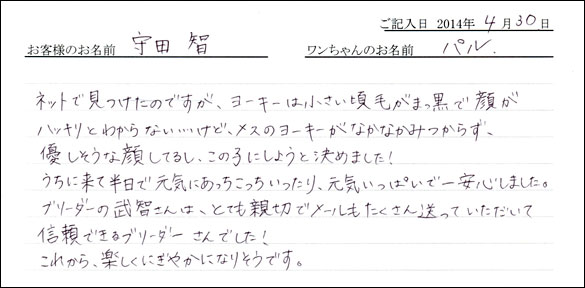 ご記入日 2014年 4月30日
お客様のお名前 守田 智 ワンちゃんのお名前 パル.
ネットで見つけたのですが、ヨーキーは小さい頃毛がまっ黒で顔が
ハッキリとわからない…けど、メスのヨーキーがなかなかみつからず、
優しそうな顔してるし、この子にしようと決めました!
うちに来て半日で元気にあっちこっちいったり、元気いっぱいで一安心しました。
ブリーダーの武智さんは、とても親切でメールもたくさん送っていただいて
信頼できるブリーダーさんでした!
これから、楽しくにぎやかになりそうです。